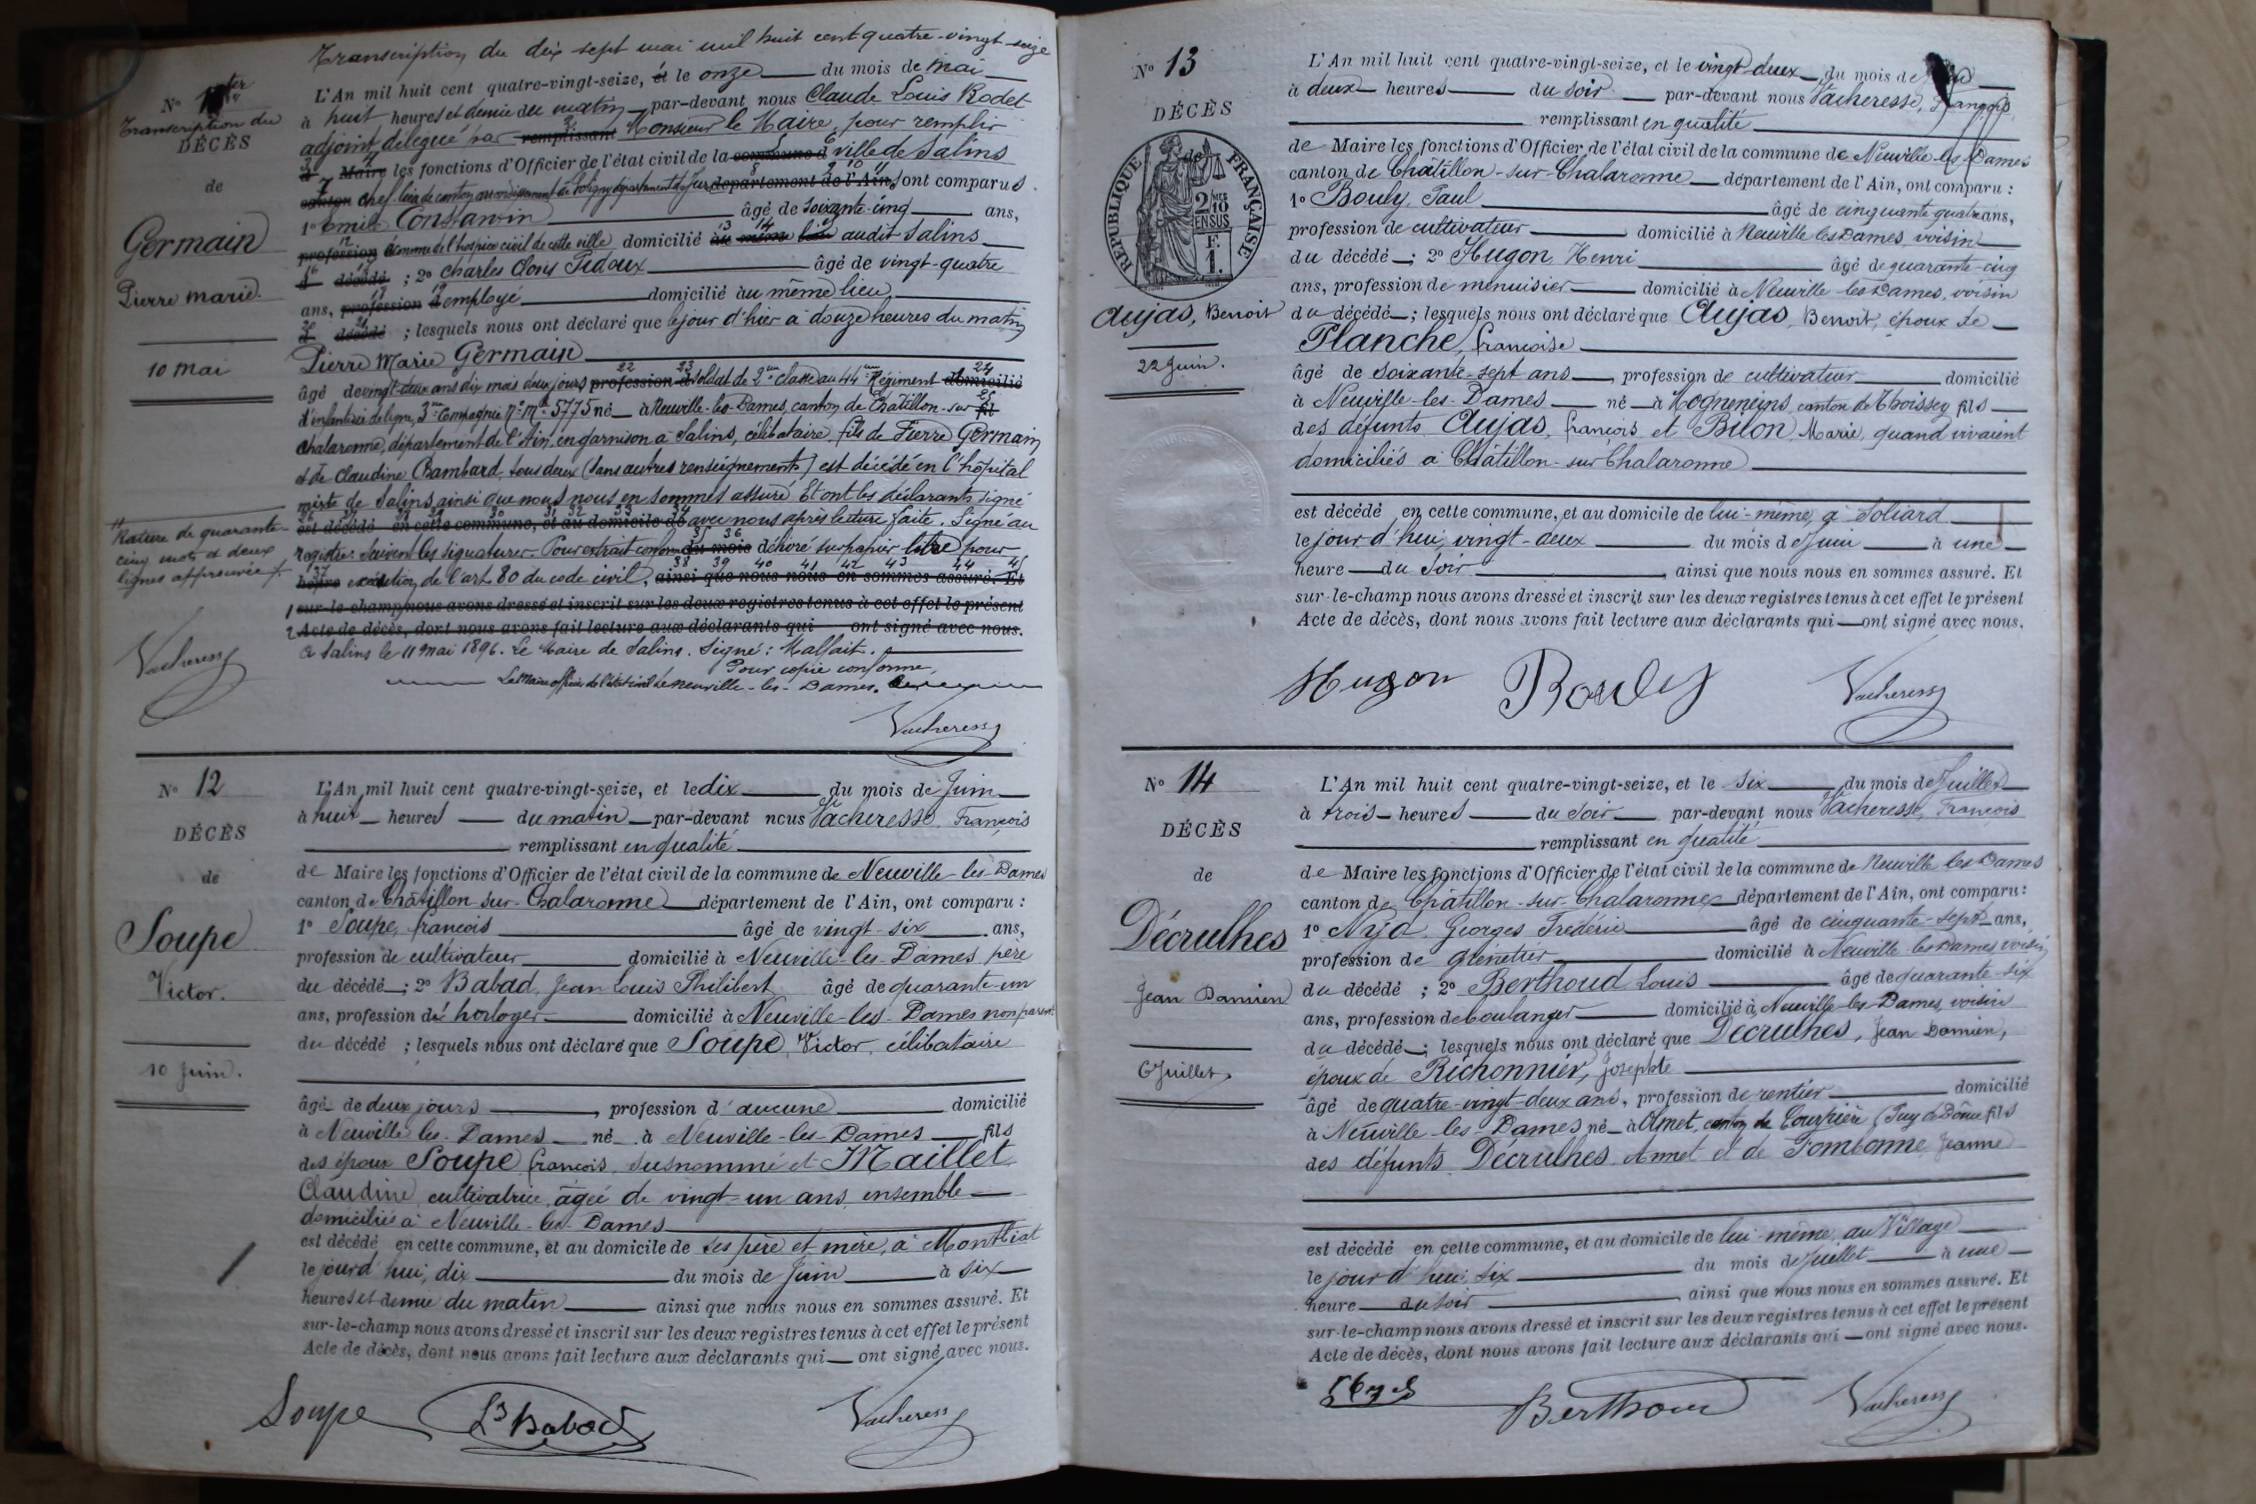 Transcription du dix sept mai mil huit cent quatre-vingt-seize
N° ter
Transcription du
DÉCÈS
de
Germain
Pierre Marie.
10 Mai
Rature de quarante-
cinq mots et deux
lignes approuvée
Vacheresse
L'An mil huit cent quatre-vingt-seize, et le onze du mois de Mai
à huit heures et demie du matin par-devant nous Claude Louis Rodet
adjoint délégué par remplissant Monsieur le Maire, pour remplir
Maire les fonctions d'Officier de l'état civil de la commune d ville de Salins
canton chef-lieu de canton arrondissement de Poligny département du Jura département de l'Ain, sont comparus
1° Emile Constantin âgé de soixante-cinq ans,
profession économe de l'hospice civil de cette ville domicilié au même lieu audit Salins
décédé ; 2° Charles Clovis Fidoux âgé de vingt-quatre
ans, profession d employé domicilié au même lieu
décédé ; lesquels nous ont déclaré que le jour d'hier à douze heures du matin
Pierre Marie Germain
âgé de vingt-deux ans dix mois deux jours profession d soldat de 2me classe au 44me Régiment domicilié
d'infanterie de ligne, 3me Compagnie N° Mle 5775 né à Neuville-les-Dames, canton de Chatillon-sur fil
Chalaronne, département de l'Ain, en garnison à Salins, célibataire, fils de Pierre Germain
et de Claudine Bambard, tous deux (sans autres renseignements) est décédé en l'hôpital
mixte de Salins, ainsi que nous nous en sommes assuré. Et ont les déclarants signé
est décédé en cette commune, et au domicile de avec nous après lecture faite. Signé au
registre. Suivent les signatures. Pour extrait conforme du mois délivré sur papier libre pour
heure exécution de l'art. 80 du code civil, ainsi que nous nous en sommes assuré. Et
sur-le-champ nous avons dressé et inscrit sur les deux registres tenus à cet effet le présent
Acte de décès, dont nous avons fait lecture aux déclarants qui ont signé avec nous.
à Salins le 11 Mai 1896. Le Maire de Salins. Signé : Malfait.
Pour copie conforme,
Le Maire officier de l'état civil de Neuville-les-Dames.
Vacheresse
N° 12
DÉCÈS
de
Soupe
Victor.
10 Juin.
L'An mil huit cent quatre-vingt-seize, et le dix du mois de Juin
à huit heures du matin par-devant nous Vacheresse, François
remplissant en qualité
de Maire les fonctions d'Officier de l'état civil de la commune de Neuville-les-Dames
canton de Châtillon-sur-Chalaronne département de l'Ain, ont comparu :
1° Soupe, François âgé de vingt-six ans,
profession de cultivateur domicilié à Neuville-les-Dames père
du décédé ; 2° Babad, Jean Louis Philibert âgé de quarante-un
ans, profession d' horloger domicilié à Neuville-les-Dames non parent
du décédé ; lesquels nous ont déclaré que Soupe, Victor, célibataire
âgé de deux jours, profession d'aucune domicilié
à Neuville-les-Dames né à Neuville-les-Dames fils
des époux Soupe, françois, susnommé et Maillet
Claudine, cultivatrice, âgée de vingt-un ans, ensemble
domiciliés à Neuville-les-Dames
est décédé en cette commune, et au domicile de ses père et mère, à Montliat
le jourd'hui, dix du mois de Juin à six
heures et demie du matin ainsi que nous nous en sommes assuré. Et
sur-le-champ nous avons dressé et inscrit sur les deux registres tenus à cet effet le présent
Acte de décès, dont nous avons fait lecture aux déclarants qui ont signé avec nous.
Soupe Babad Vacheresse
N° 13
DÉCÈS
de
RÉPUBLIQUE FRANÇAISE
2 10
EN SUS
F.
1.
Aujas, Benoit
22 Juin.
L'An mil huit cent quatre-vingt-seize, et le vingt-deux du mois de
à deux heures du soir par-devant nous Vacheresse, François
remplissant en qualité
de Maire les fonctions d'Officier de l'état civil de la commune de Neuville-les-Dames
canton de Châtillon-sur-Chalaronne département de l'Ain, ont comparu :
1° Bouly, Paul âgé de cinquante quatre ans,
profession de cultivateur domicilié à Neuville les Dames voisin
du décédé ; 2° Hugon, Henri âgé de quarante-cinq
ans, profession de menuisier domicilié à Neuville-les-Dames, voisin
du décédé ; lesquels nous ont déclaré que Aujas, Benoit, époux de
Planche, françoise
âgé de soixante-sept ans, profession de cultivateur domicilié
à Neuville-les-Dames né à Mogneneins, canton de Thoissey fils
des défunts Aujas, françois et Bilon, Marie, quand vivaient
domiciliés à Châtillon-sur-Chalaronne
est décédé en cette commune, et au domicile de lui-même, à Soliard
le jour d'hui, vingt-deux du mois de Juin à une
heure du soir, ainsi que nous nous en sommes assuré. Et
sur-le-champ nous avons dressé et inscrit sur les deux registres tenus à cet effet le présent
Acte de décès, dont nous avons fait lecture aux déclarants qui ont signé avec nous.
Hugon Bouly Vacheresse
N° 14
DÉCÈS
de
Décrulhes
Jean Damien
6 Juillet.
L'An mil huit cent quatre-vingt-seize, et le six du mois de Juillet
à trois heures du soir par-devant nous Vacheresse, François
remplissant en qualité
de Maire les fonctions d'Officier de l'état civil de la commune de Neuville les Dames
canton de Châtillon-sur-Chalaronne département de l'Ain, ont comparu :
1° Nyd, Georges Frédéric âgé de cinquante-sept ans,
profession de domicilié à Neuville les Dames voisin
du décédé ; 2° Berthoud Louis âgé de quarante-six
ans, profession de boulanger domicilié à Neuville-les-Dames, voisin
du décédé ; lesquels nous ont déclaré que Décrulhes, Jean Damien,
époux de Richonnier, Josephte
âgé de quatre-vingt-deux ans, profession de rentier domicilié
à Neuville-les-Dames né à Olmet, canton de Courpière (Puy de Dôme fils
des défunts Décrulhes Annet et de Fombonne, Jeanne
est décédé en cette commune, et au domicile de lui-même, au Village
le jour d'hui, six du mois de Juillet à une
heure du soir, ainsi que nous nous en sommes assuré. Et
sur-le-champ nous avons dressé et inscrit sur les deux registres tenus à cet effet le présent
Acte de décès, dont nous avons fait lecture aux déclarants qui ont signé avec nous.
Berthoud Vacheresse